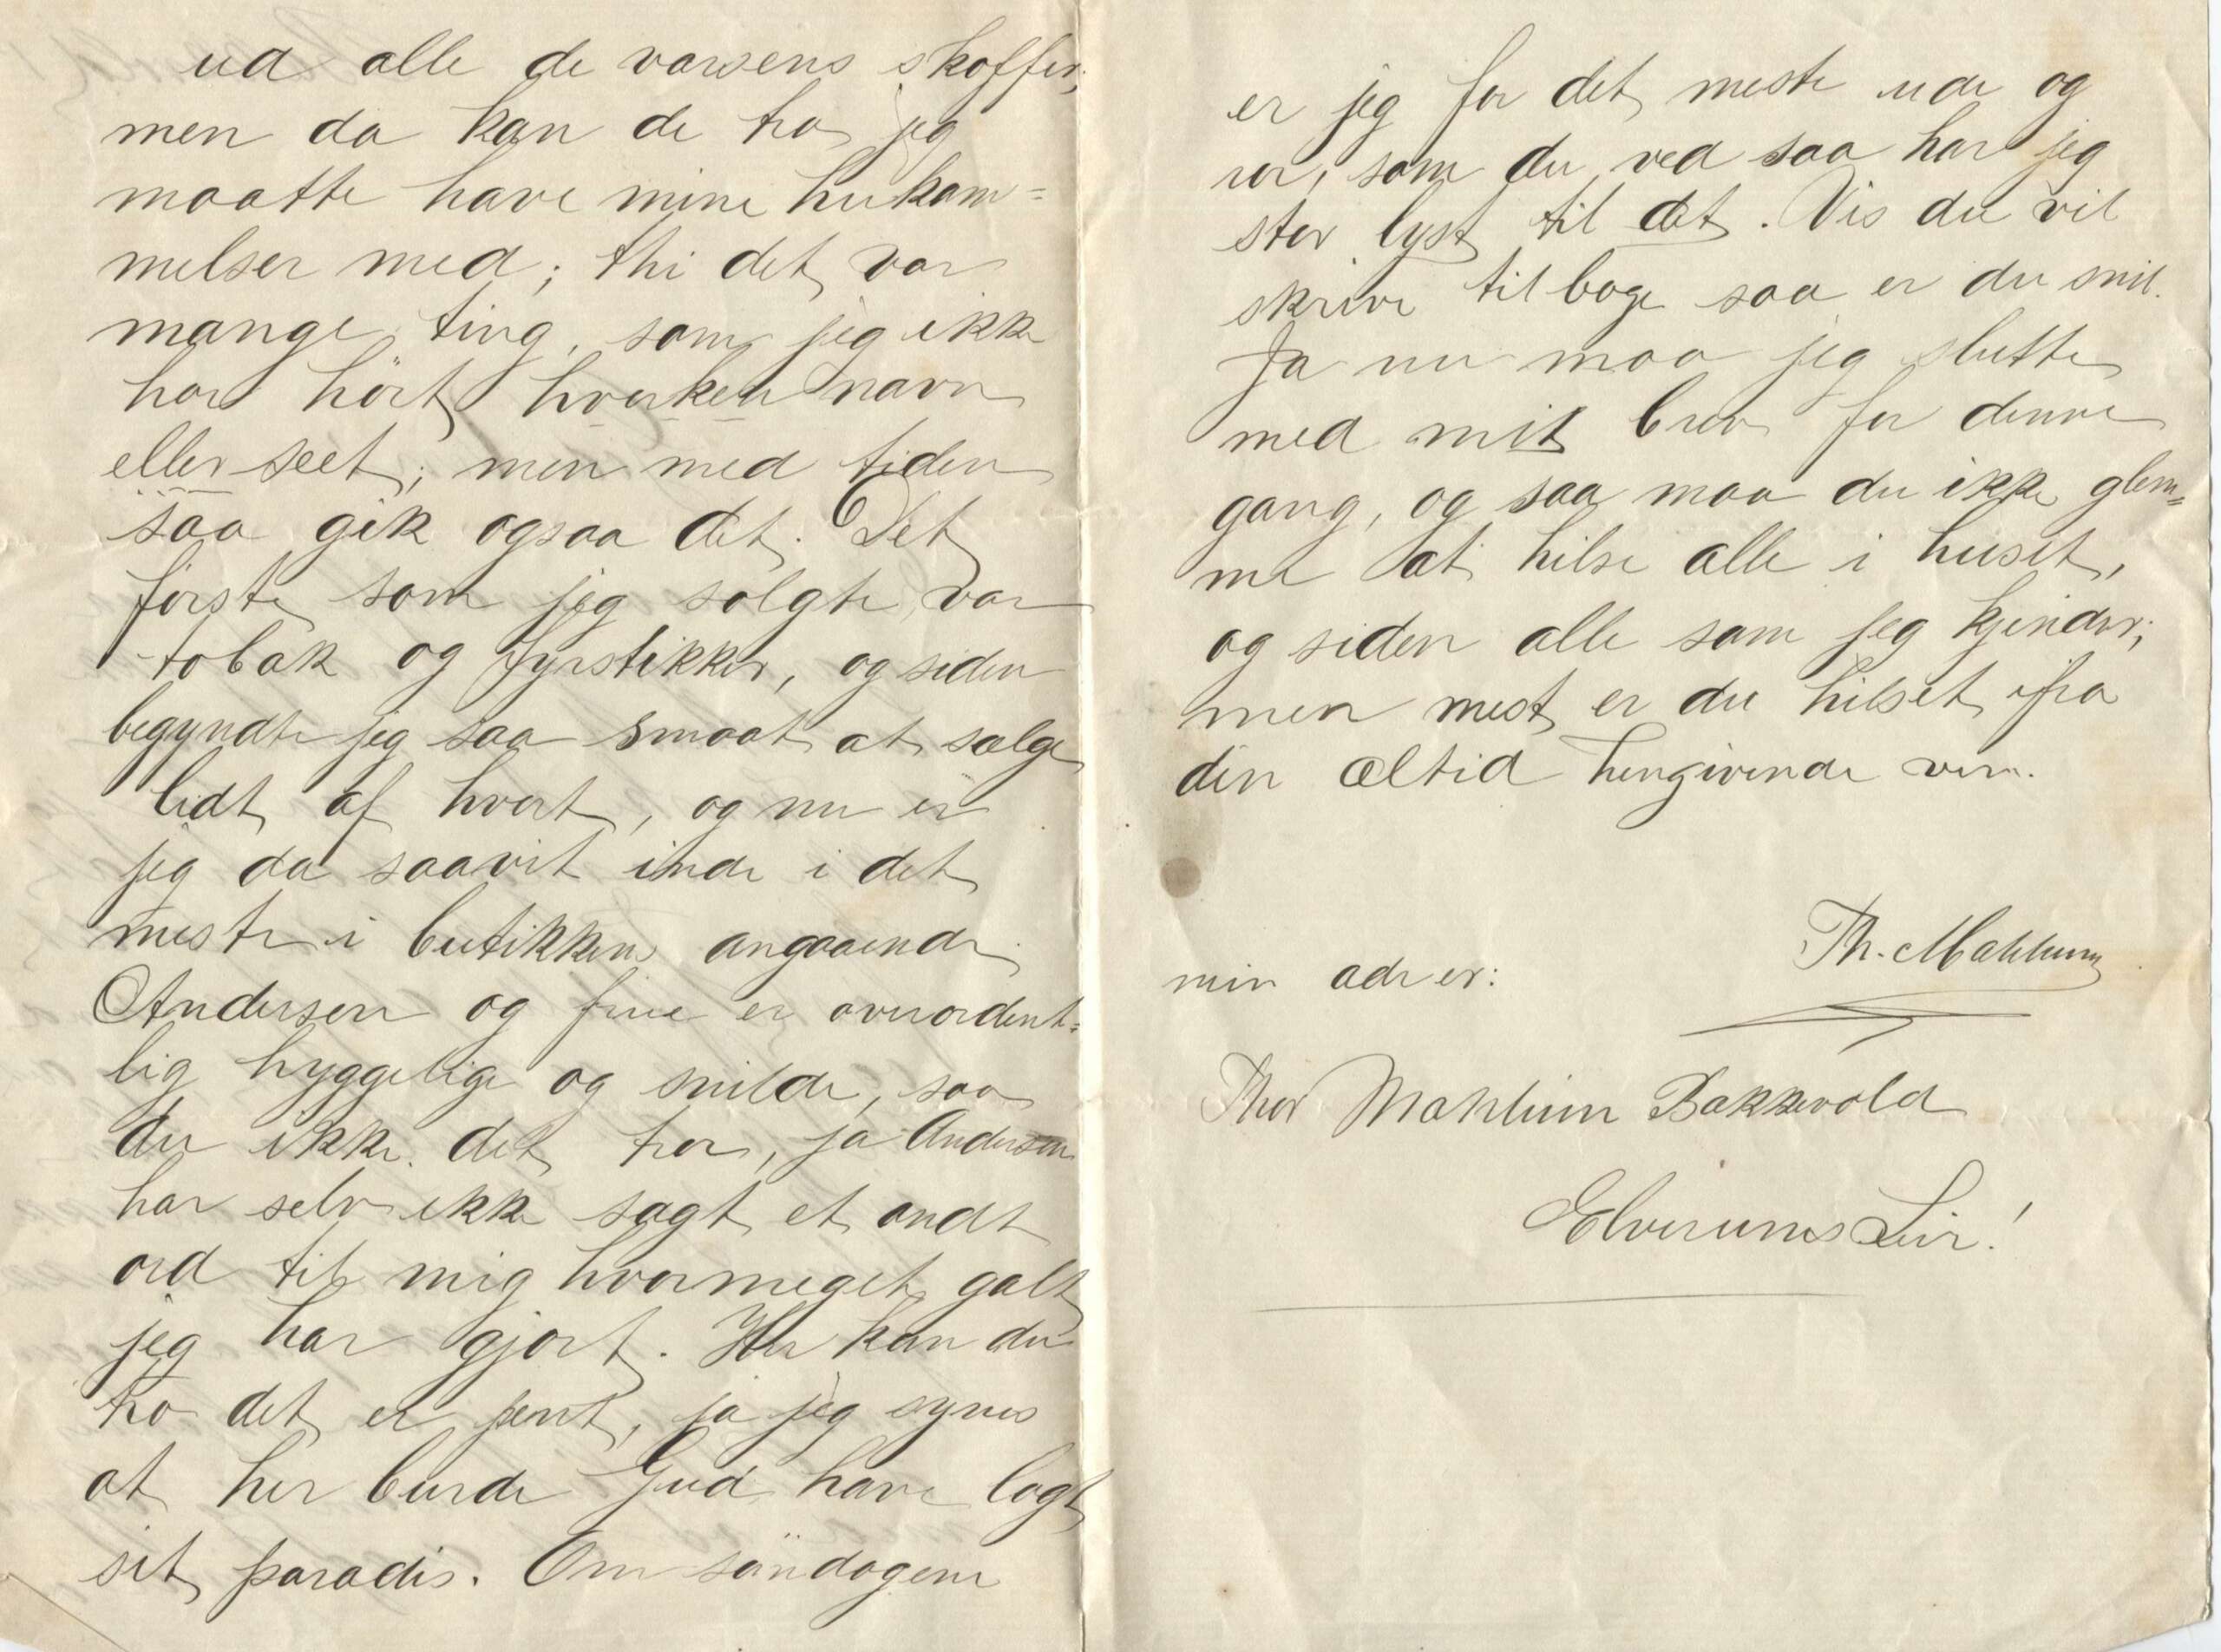 ud alle de varsens skoffer,
men da kan de tro jeg
maatte have mine hukom=
melser med; thi det var
mange ting, som jeg ikke
har hört hverken navn
eller seet; men med tiden
saa gik ogsaa det. Det
förste som jeg solgte var
tobak og fyrstikker, og siden
begyndte jeg saa smaat at sælge
lidt af hvert, og nu er
jeg da saavit inde i det
meste i butikken angaaende.
Andersen og frue er overordent=
lig hyggelige og snilde, saa
du ikke det tror, ja Andersen
har selv ikke sagt et ondt
ord til mig hvormeget galt
jeg har gjort. Her kan du
tro det er pent, ja jeg synes
at her burde Gud have lagt
sit paradis. Om söndagene
er jeg for det meste ude og
ror, som du ved saa har jeg
stor lyst til det. Vis du vil
skrive tilbage saa er du snil.
Ja nu maa jeg slutte
med mit brev for denne
gang, og saa maa du ikke glem=
me at hilse alle i huset,
og siden alle som jeg kjender;
men mest er du hilset ifra
din altid hengivende ven.
Th. Mahlum
min adr er:
Thor Mahlum Bakkevold
Elverums Leir!